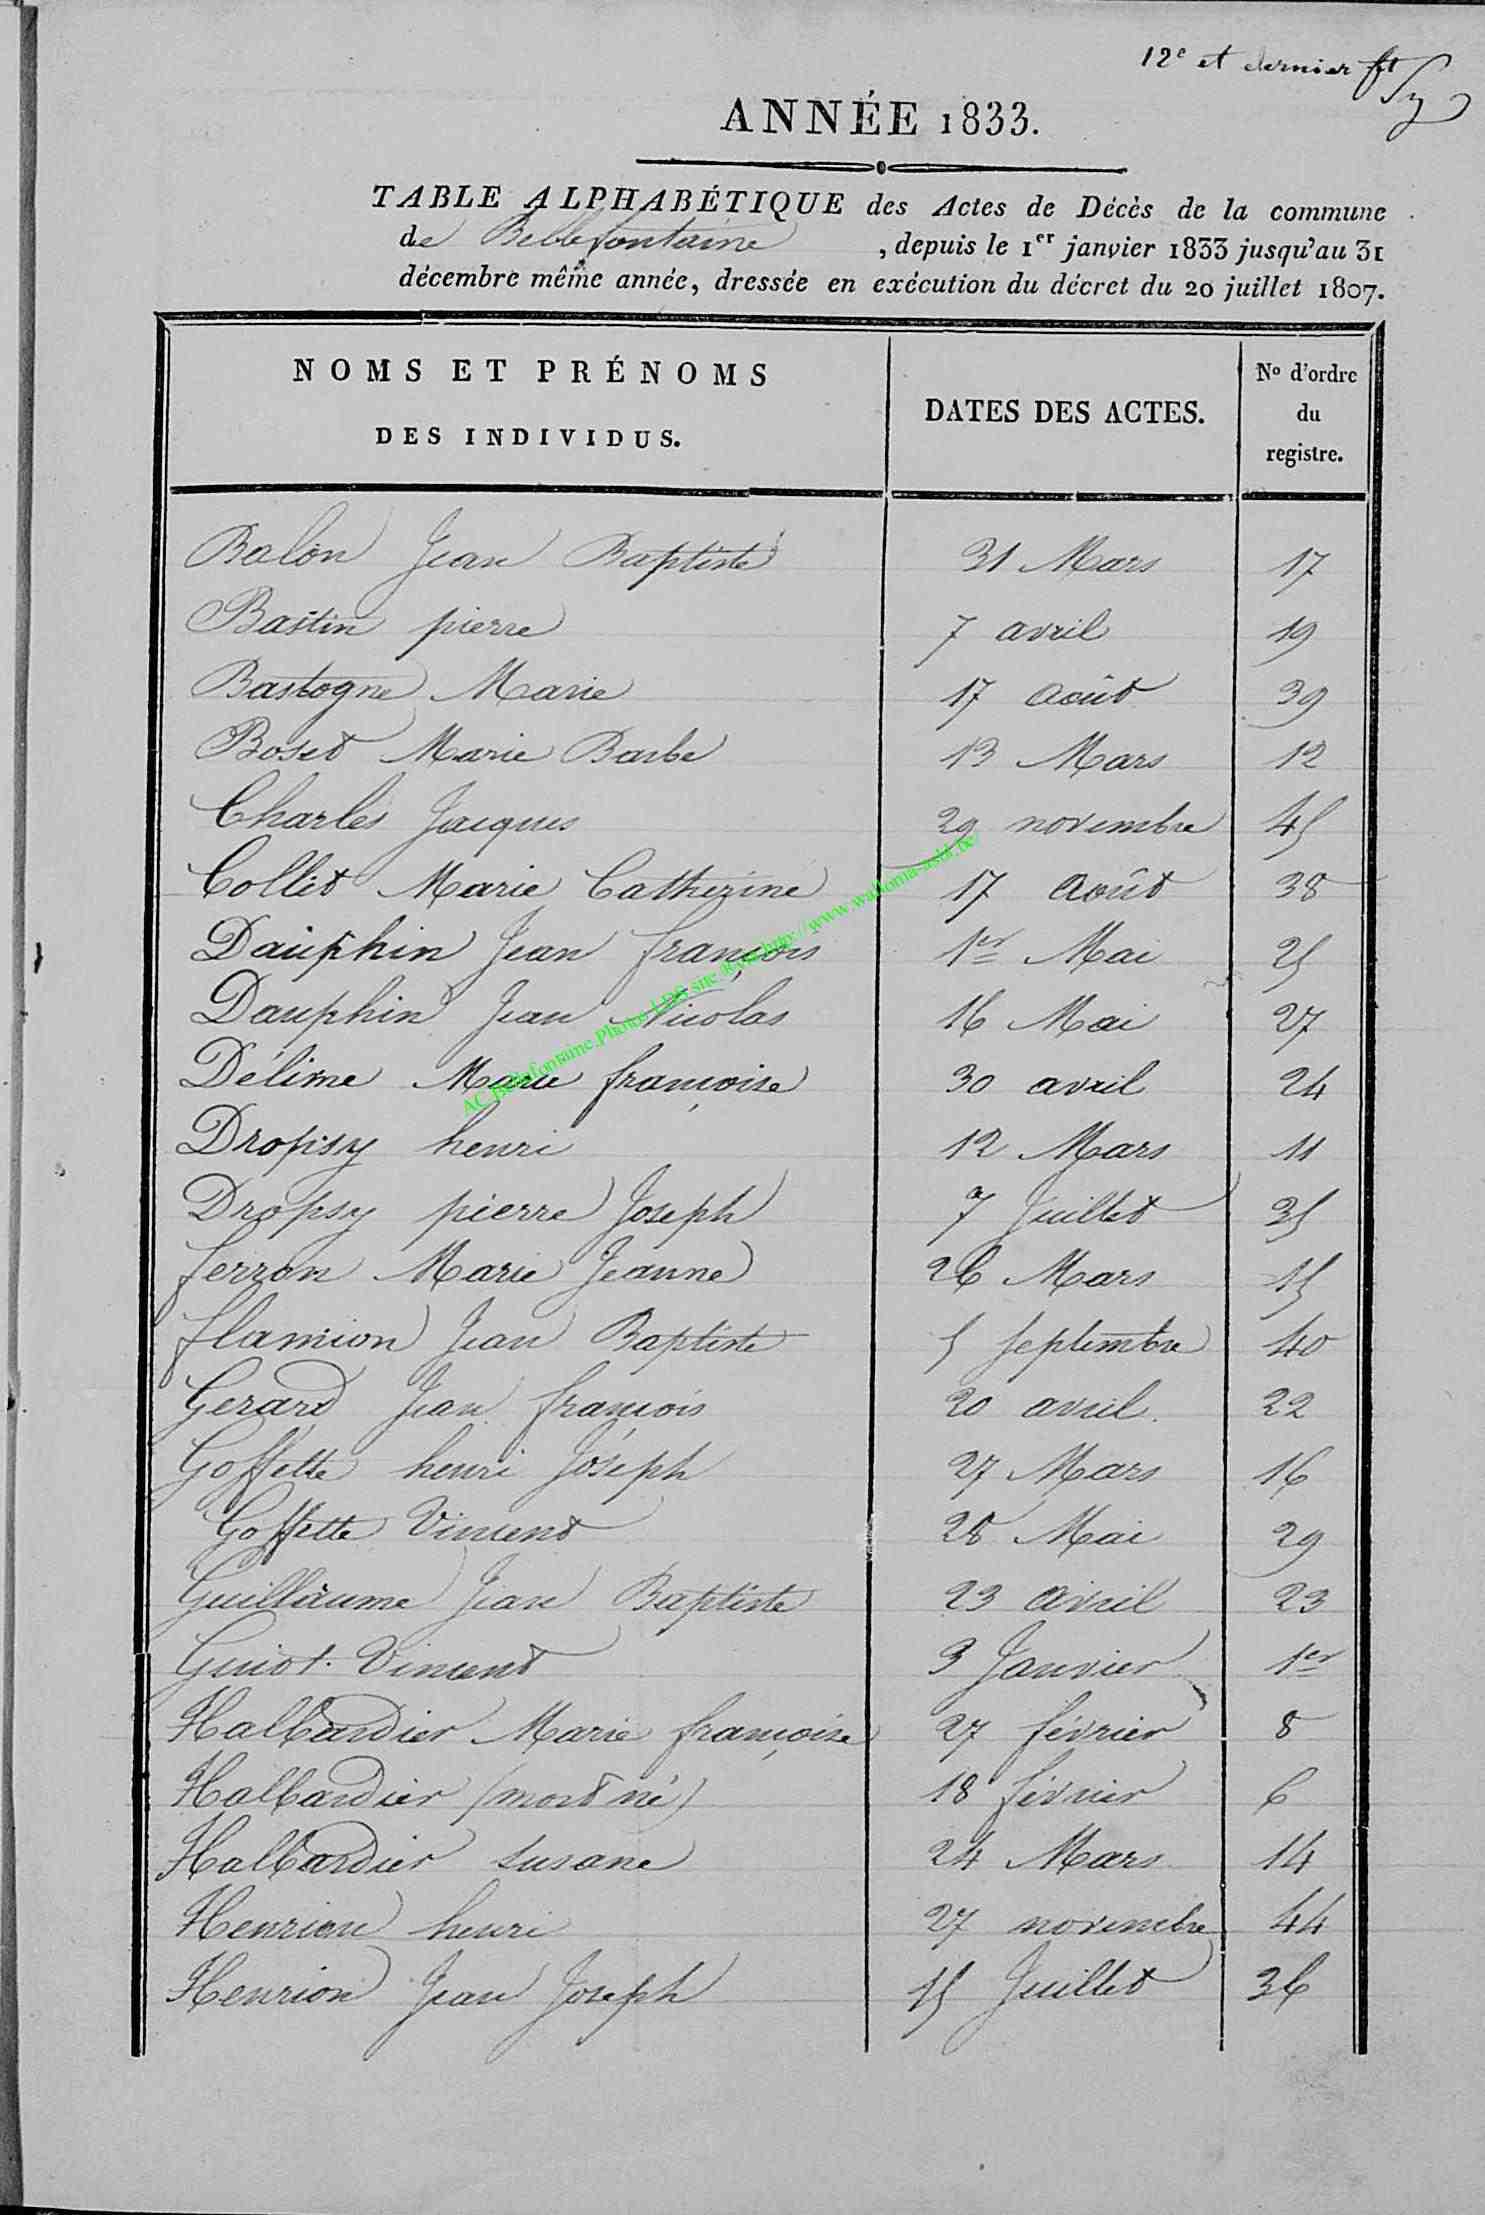 12e et dernier ft
ANNÉE 1833.
TABLE ALPHABÉTIQUE des Actes de Décès de la commune
de Bellefontaine , depuis le 1er janvier 1833 jusqu'au 31
décembre même année, dressée en exécution du décret du 20 juillet 1807.
NOMS ET PRÉNOMS DATES DES ACTES. No d'ordre
DES INDIVIDUS. du
registre.
Balon Jean Baptiste 31 Mars 17
Bastin pierre 7 avril 19
Bastogne Marie 17 Août 39
Boset Marie Barbe 13 Mars 12
Charles Jacques 29 novembre 45
Collet Marie Catherine 17 Août 38
Dauphin Jean françois 1er Mai 25
Dauphin Jean Nicolas 16 Mai 27
Délime Marie françoise 30 avril 24
Dropsy henri 12 Mars 11
Dropsy pierre Joseph 7 Juillet 35
ferron Marie Jeanne 26 Mars 15
flamion Jean Baptiste 5 septembre 40
Gerard Jean françois 20 avril 22
Goffette henri Joseph 27 Mars 16
Goffette Vincent 28 Mai 29
Guillaume Jean Baptiste 23 avril 23
Guiot Vincent 3 Janvier 1er
Halbardier Marie françoise 27 février 8
Halbardier (mort né) 18 février 6
Halbardier susane 24 Mars 14
Henrion henri 27 novembre 44
Henrion Jean Joseph 15 Juillet 36
AC Bellefontaine Photos LDS site http://www.wallonia-asbl.be/